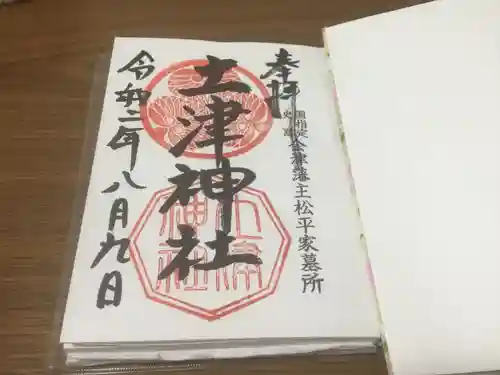 奉拝
国指定
史蹟
会津藩主松平家墓所
土津神社
令和二年八月九日
土津
神社